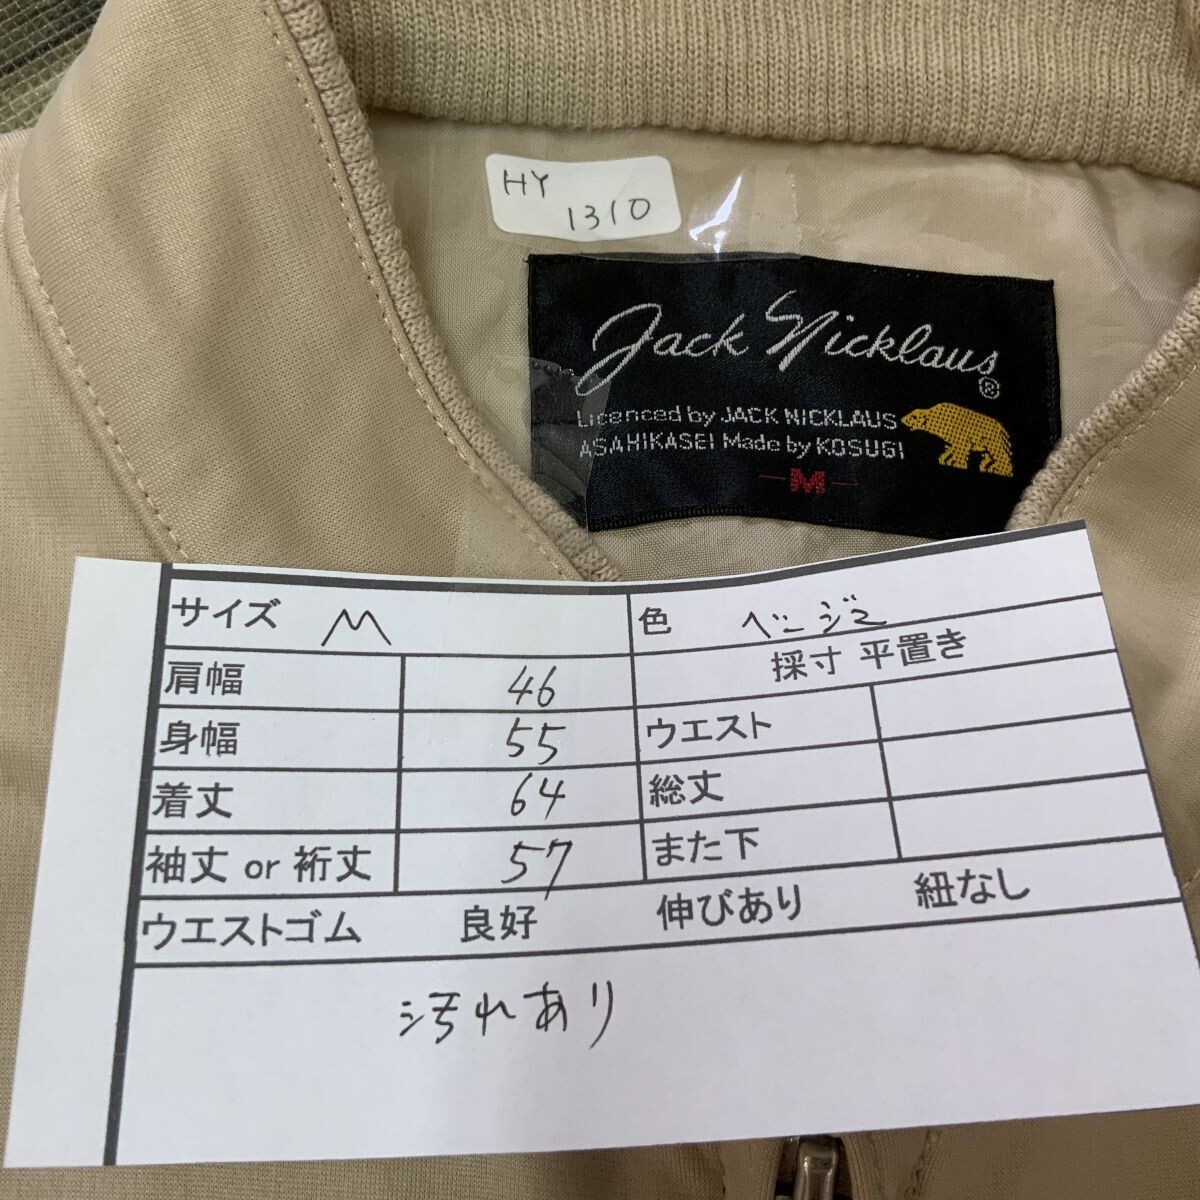 HY
1310
Jack Nicklaus®
Licenced by JACK NICKLAUS
ASAHIKASEI Made by KOSUGI
-M-
サイズ M 色 ベージュ
肩幅 46 採寸 平置き
身幅 55 ウエスト
着丈 64 総丈
袖丈 or 裄丈 57 また下
ウエストゴム 良好 伸びあり 紐なし
汚れあり